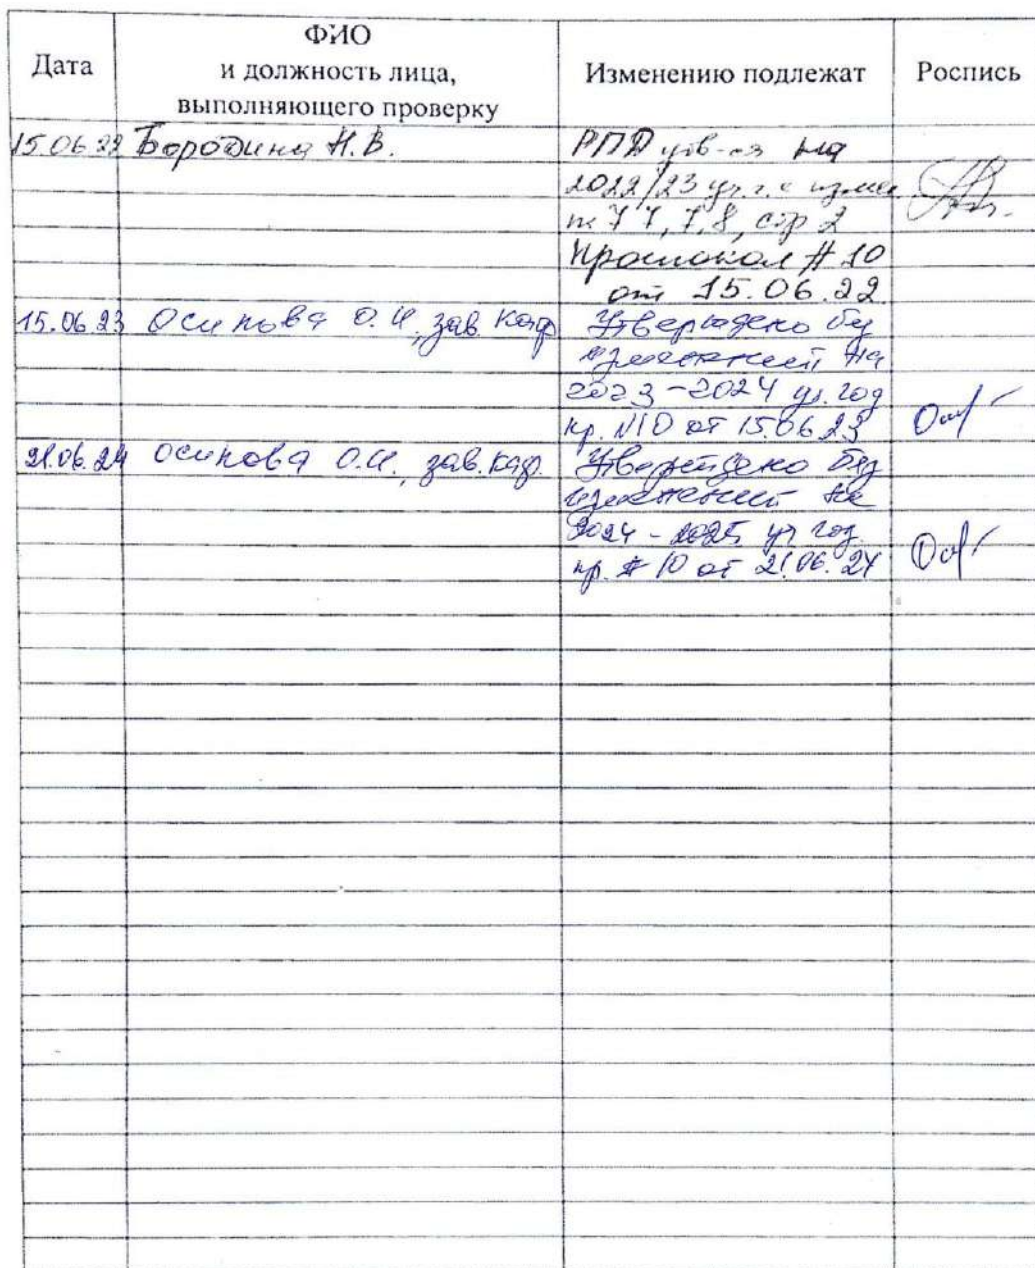 Дата
ФИО
и должность лица,
выполняющего проверку
Изменению подлежат
Роспись
15.06.22 Бородина Н.В. РПД утв-ся на
2022/23 уч. г. с измен.
7.7, 7.8, стр 2
Протокол № 10
от 15.06.22
15.06.23 Осипова О.И., зав. каф Утверждено без
изменений на
2023-2024 уч. год
пр. №10 от 15.06.23
21.06.24 Осипова О.И., зав. каф. Утверждено без
изменений на
2024-2025 уч год
пр. № 10 от 21.06.24